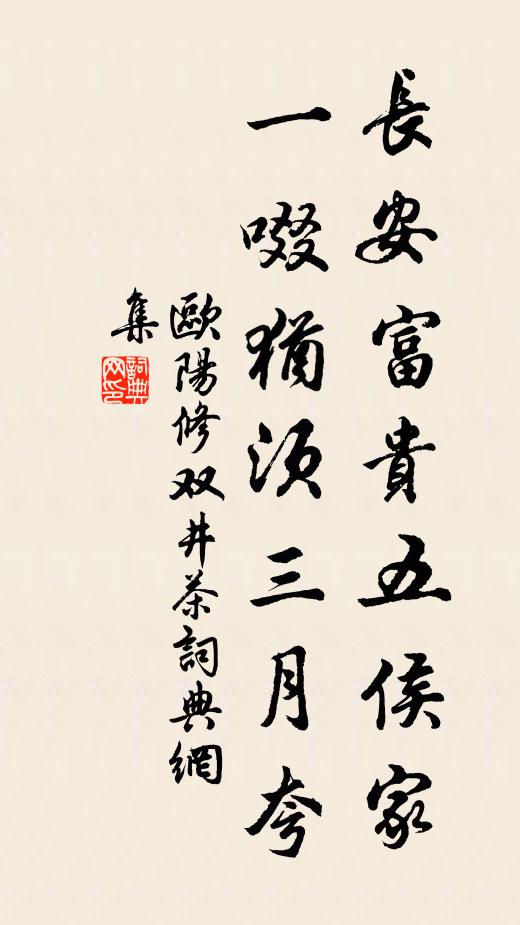 長安富貴五侯家
一啜猶須三月夸
歐陽修双井茶詞典網
集
詞典网印